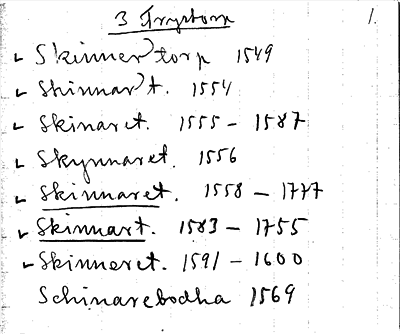 3 Trystorp 1.
Skinnertorp 1549
Skinnart. 1554
Skinaret. 1555 - 1587
Skynnaret. 1556
Skinnaret. 1558 - 1777
Skinnart. 1583 - 1755
Skinneret. 1591 - 1600
Schinarebodha 1569